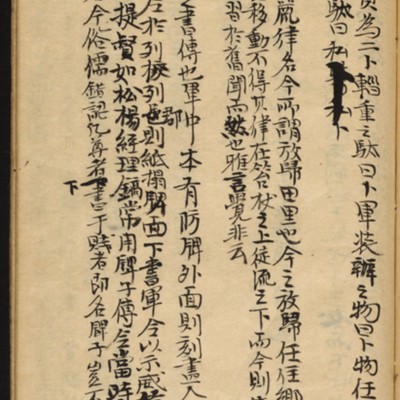 為二卜輜重之駄曰卜軍裝辦之物曰卜物任
駄曰私卜
麗律名今所謂放歸田里也今之放歸任往鄉
移動不得只律在笞杖之上徒流之下而今則
習於舊聞而然也雅言覺非云
書傳也軍中本有防牌外面則刻畫
於列校列郡則紙榻牌面下書軍令以示威
提督如松楊經理鎬常用牌子傳令當時
今俗儒錯記凡尊者下書于賤者即名牌子豈不